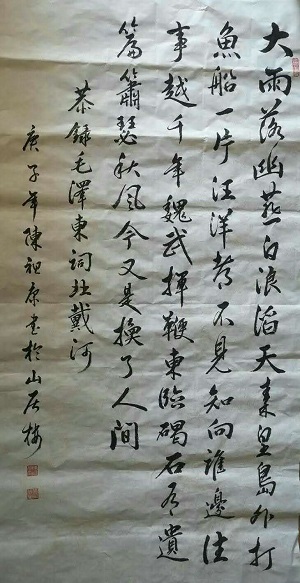 大雨落幽燕白浪滔天秦皇島外打
魚船一片汪洋都不見知向誰邊往
事越千年魏武揮鞭東臨碣石有遺
篇簫瑟秋風今又是換了人間
恭錄毛澤東詞北戴河
庚子年陳祖康書於山居梅